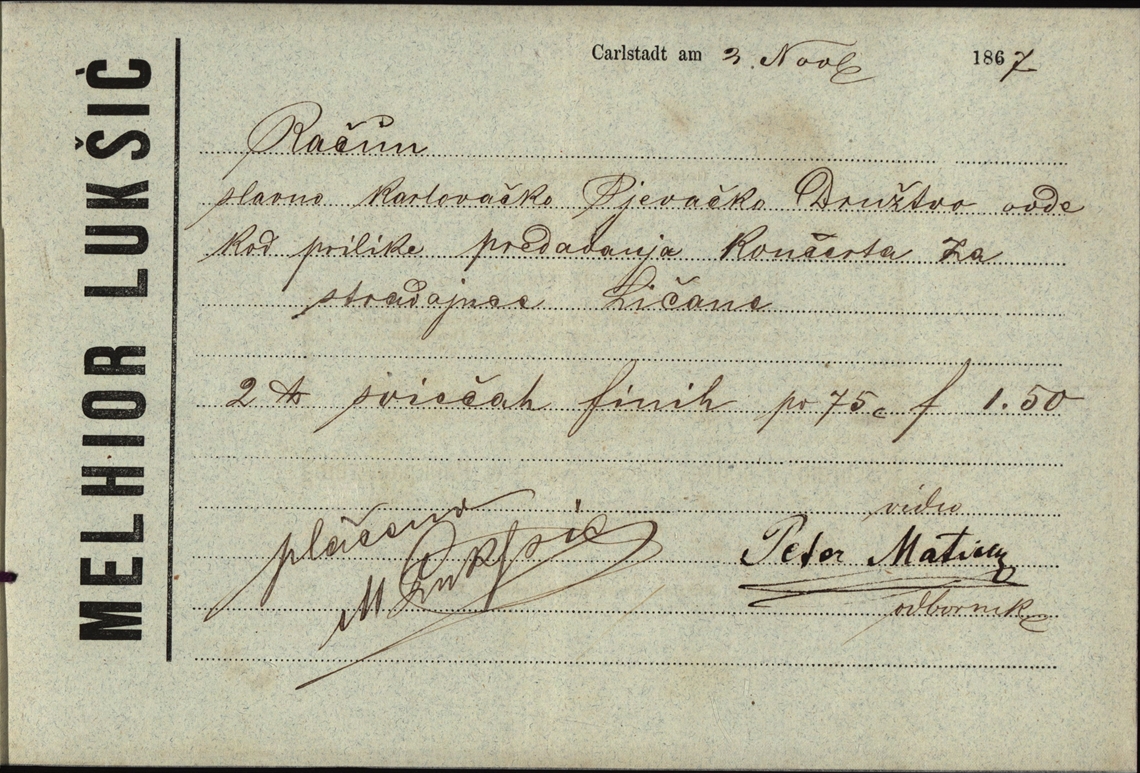 MELHIOR LUKŠIĆ
Carlstadt am 3. Novb 1867
Račun
slavno Karlovačko Pjevačko Družtvo ovde
kod prilike predavanja Končerta za
stradajuće Ličane
2 ℔ sviećah finih po 75c f 1.50
plaćeno
M Lukšić
vidio
Petar
odbornik